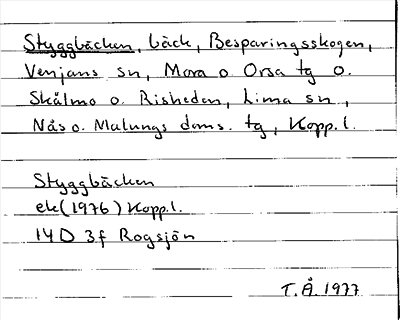 Styggbäcken, bäck, Besparingsskogen,
Venjans sn, Mora o Orsa tg o.
Skålmo o. Risheden, Lima sn,
Nås o. Malungs doms. tg, Kopp. l.
Styggbäcken
ek (1976) Kopp. l.
14D 3f Rogsjön
T.Å. 1977